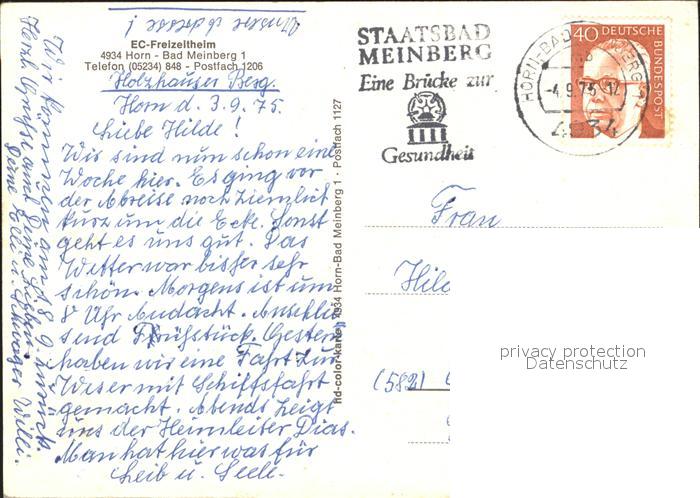 Unsere Adresse!
EC-Freizeitheim
4934 Horn - Bad Meinberg 1
Telefon (05234) 848 - Postfach 1206
Holzhauser Berg.
Horn d. 3.9.75.
Liebe Hilde!
Wir sind nun schon eine
Woche hier. Es ging vor
der Abreise noch ziemlich
kurz um die Ecke. Sonst
geht es uns gut. Das
Wetter war bisher sehr
schön. Morgens ist um
8 Uhr Andacht. Anschlie
send Frühstück. Gestern
haben wir eine Fahrt zur
Weser mit Schiffsfahrt
gemacht. Abends zeigt
uns der Heimleiter Dias.
Man hat hier was für
Leib u. Seele.
Wir kommen am 18.9. zurück.
Herzl. Grüße und Deine Lieben
Deine Elli u. Schwager Willi.
rid-color-karte 4934 Horn-Bad Meinberg 1 · Postfach 1127
STAATSBAD
MEINBERG
Eine Brücke zur
Gesundheit
HORN-BAD MEINBERG 1
-4.9.75.-17
4934
40 DEUTSCHE
BUNDESPOST
Frau
Hild
(582)
privacy protection
Datenschutz